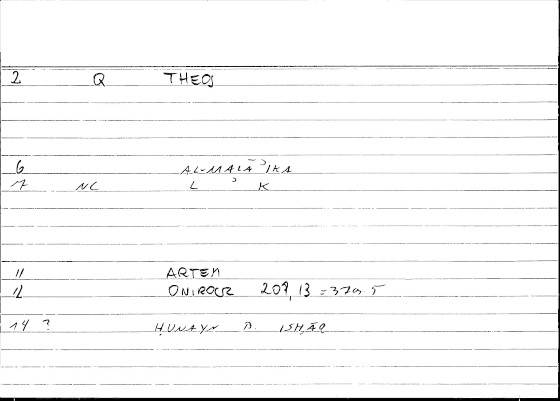 2 Q THEOS
6 AL-MALĀʾIKA
7 NC L ʾ K
11 ARTEM
12 ONIROCR 207, 13 = 379 5
14 ? ḤUNAYN B. ISḤĀQ